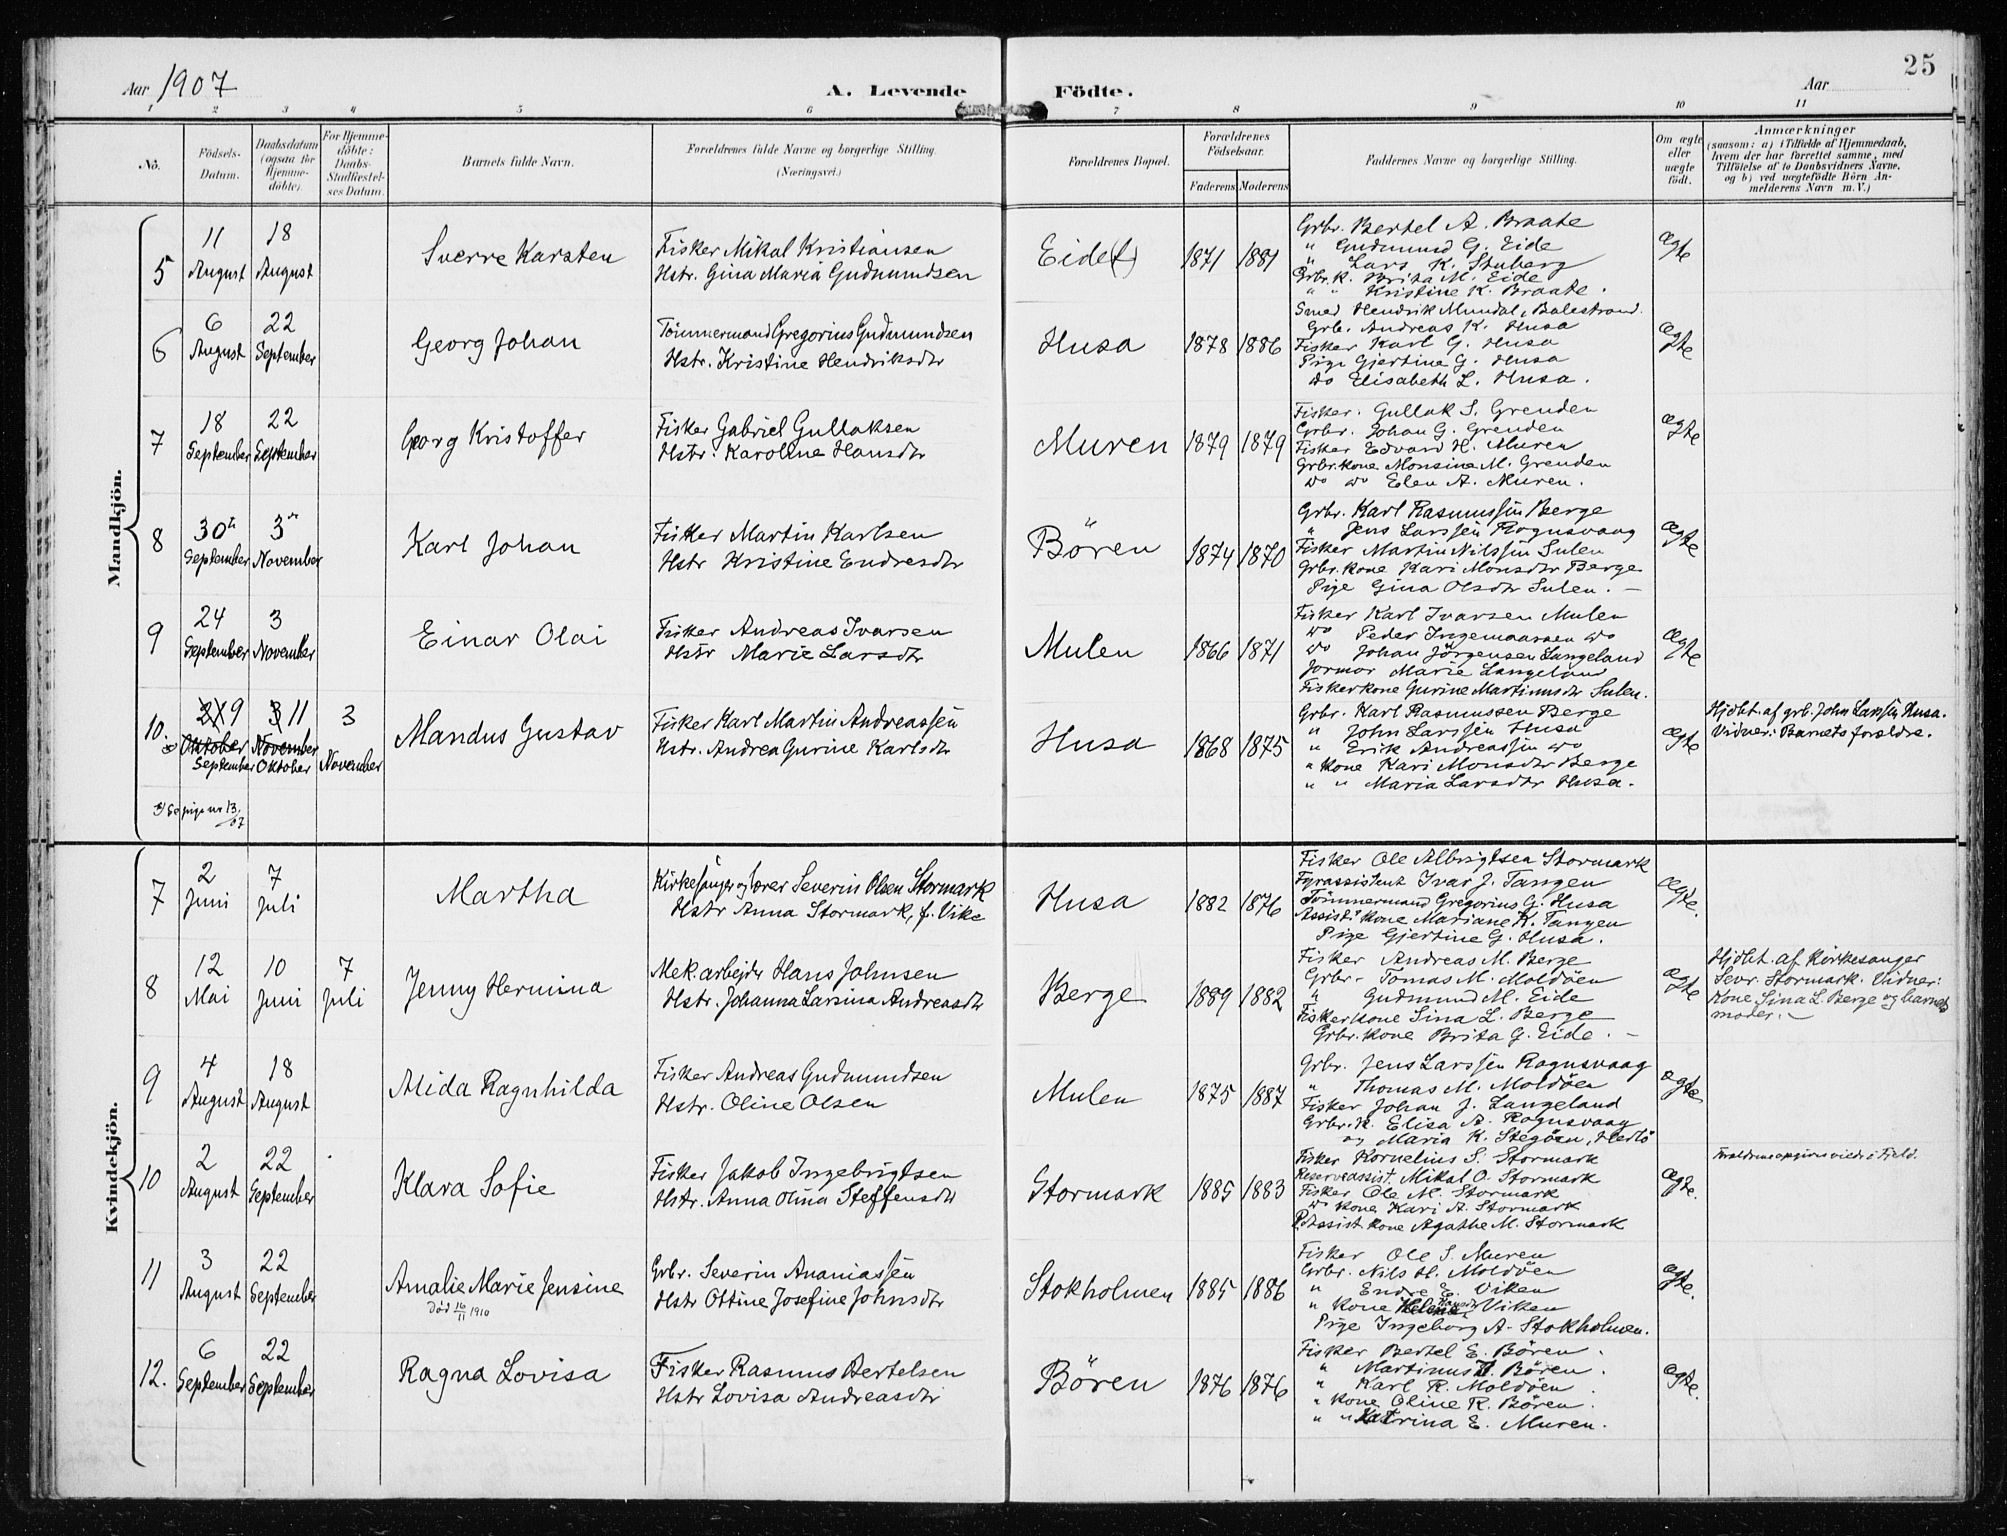 25
Aar 1907
A. Levende Födte.
Aar
1 2 3 4 5 6 7 8 9 10 11
No.
Födsels-Datum.
Daabsdatum (ogsaa for Hjemme-döbte).
For Hjemme-döbte: Daabs-Stadfæstel-ses Datum.
Barnets fulde Navn.
Forældrenes fulde Navne og borgerlige Stilling. (Næringsvei.)
Forældrenes Bopæl.
Forældrenes Födselsaar.
Faderens Moderens
Faddernes Navne og borgerlige Stilling.
Om ægte eller uægte födt.
Anmærkninger
(saasom: a) i Tilfælde af Hjemmedaab,
hvem der har forrettet samme, med
Tilföielse af to Daabsvidners Navne,
og b) ved uægtefödte Börn An-
melderens Navn m. V.)
Mandkjön.
5
11 August
18 August
Sverre Karsten
Fisker Mikal Kristiansen
Hstr. Gina Maria Gudmundsen
Eide(t)
1871 1881
Grbr. Bertel A. Braate
" Gudmund G. Eide
" Lars K. Stuberg
Grbr.k. Brita M. Eide
" " Kristine K. Braate.
Ægte
6
6 August
22 September
Georg Johan
Tömmermand Gregorius Gudmundsen
Hstr. Kristine Hendriksdtr
Husa
1878 1886
Smed Hendrik Mundal, Balestrand.
Grb. Andreas K. Husa
Fisker Karl G. Husa
Pige Gjertine G. Husa
do Elisabeth L. Husa.
Ægte
7
18 September
22 September
Georg Kristoffer
Fisker Gabriel Gullaksen
Hstr. Karoline Hansdtr
Muren
1879 1879
Fisker. Gullak S. Grenden
Grbr. Johan G. Grenden
Fisker Edvard H. Muren
Grbr. kone Monsine M. Grenden
do do Elen A. Muren.
Ægte
8
30te September
3die November
Karl Johan
Fisker Martin Karlsen
Hstr Kristine Endresdtr
Bören
1874 1870
Grbr. Karl Rasmussen Berge
" Jens Larssen Rognsvaag
Fisker Martin Nilssen Sulen
Grbr. kone Kari Monsdtr Berge
Pige Gina Olsdtr Sulen. -
Ægte
9
24 September
3 November
Einar Olai
Fisker Andreas Ivarsen
Hstr Marie Larsdtr
Mulen
1866 1871
Fisker Karl Ivarsen Mulen
do Peder Ingemaarsen do
do Johan Jörgensen Langeland
Jormor Marie Langeland
Fiskerkone Gurine Martinusdtr Sulen.
Ægte
10.
9 Oktober September
3 11 November Oktober
3 November
Mandus Gustav
Fisker Karl Martin Andreassen
Hstr. Andrea Gurine Karlsdtr
Husa
1868 1875
Grbr. Karl Rasmussen Berge
" John Larssen Husa
" Erik Andreassen do
" kone Kari Monsdtr Berge
" " Maria Larsdtr Husa.
Ægte
Hjdbt. af grb. John Larssen Husa.
Vidner: Barnets forældre.
Se pige nr 13/07
Kvindekjön.
7
2 Juni
7 Juli
Martha
Kirkesanger og lærer Severin Olsen Stormark
Hstr Anna Stormark, f. Vike
Husa
1882 1876
Fisker Ole Albrigtsen Stormark
Fyrassistent Ivar J. Tangen
Tömmermand Gregorius G. Husa
Assist. kone Mariane K. Tangen
Pige Gjertine G. Husa.
Ægte.
8
12 Mai
10 Juni
7 Juli
Jenny Hermina
Mek. arbejder Hans Johnsen
Hstr. Johanna Larsina Andreasdtr
Berge
1889 1882
Fisker Andreas M. Berge
Grbr- Tomas M. Moldöen
" Gudmund M. Eide
Fiskerkone Sina L. Berge
Grbr. kone Brita G. Eide. -
Ægte
Hjdbt. af Kirkesanger
Sevr. Stormark. Vidner:
Kone Sina L. Berge og barnets
moder. -
9
4 August
18 August
Alida Ragnhilda
Fisker Andreas Gudmundsen
Hstr. Oline Olsen
Mulen
1875 1887
Grbr. Jens Larssen Rognsvaag
" Thomas M. Moldöen
Fisker Johan J. Langeland
Grbr. K. Elisa A. Rognsvaag
og Maria K. Stegöen, Herlö
Ægte
10
2 August
22 September
Klara Sofie
Fisker Jakob Ingebrigtsen
Hstr. Anna Olina Steffensdtr
Stormark
1885 1883
Fisker Kornelius S. Stormark
Reserveassist. Mikal O. Stormark
Fisker Ole M. Stormark
do kone Kari A. Stormark
R.assist. kone Agathe M. Stormark
Ægte.
Forældrene opgives viede i Fjeld.
11
3 August
22 September
Amalie Marie Jensine
Död 16/11 1910
Grbr. Severin Ananiassen
Hstr Ottine Josefine Johnsdtr
Stokholmen
1885 1886
Fisker Ole S. Muren
Grbr. Nils H. Moldöen
" Endre E. Viken
" kone Helena Hansdtr Viken
Pige Ingeborg A. Stokholmen.
Ægte.
12.
6 September
22 September
Ragna Lovisa
Fisker Rasmus Bertelsen
Hstr Lovisa Andreasdtr
Bören
1876 1876
Fisker Bertel E. Bören.
" Martinus Bören.
" Karl R. Moldöen.
" kone Oline R. Bören.
" " Katrina E. Muren.
Ægte.